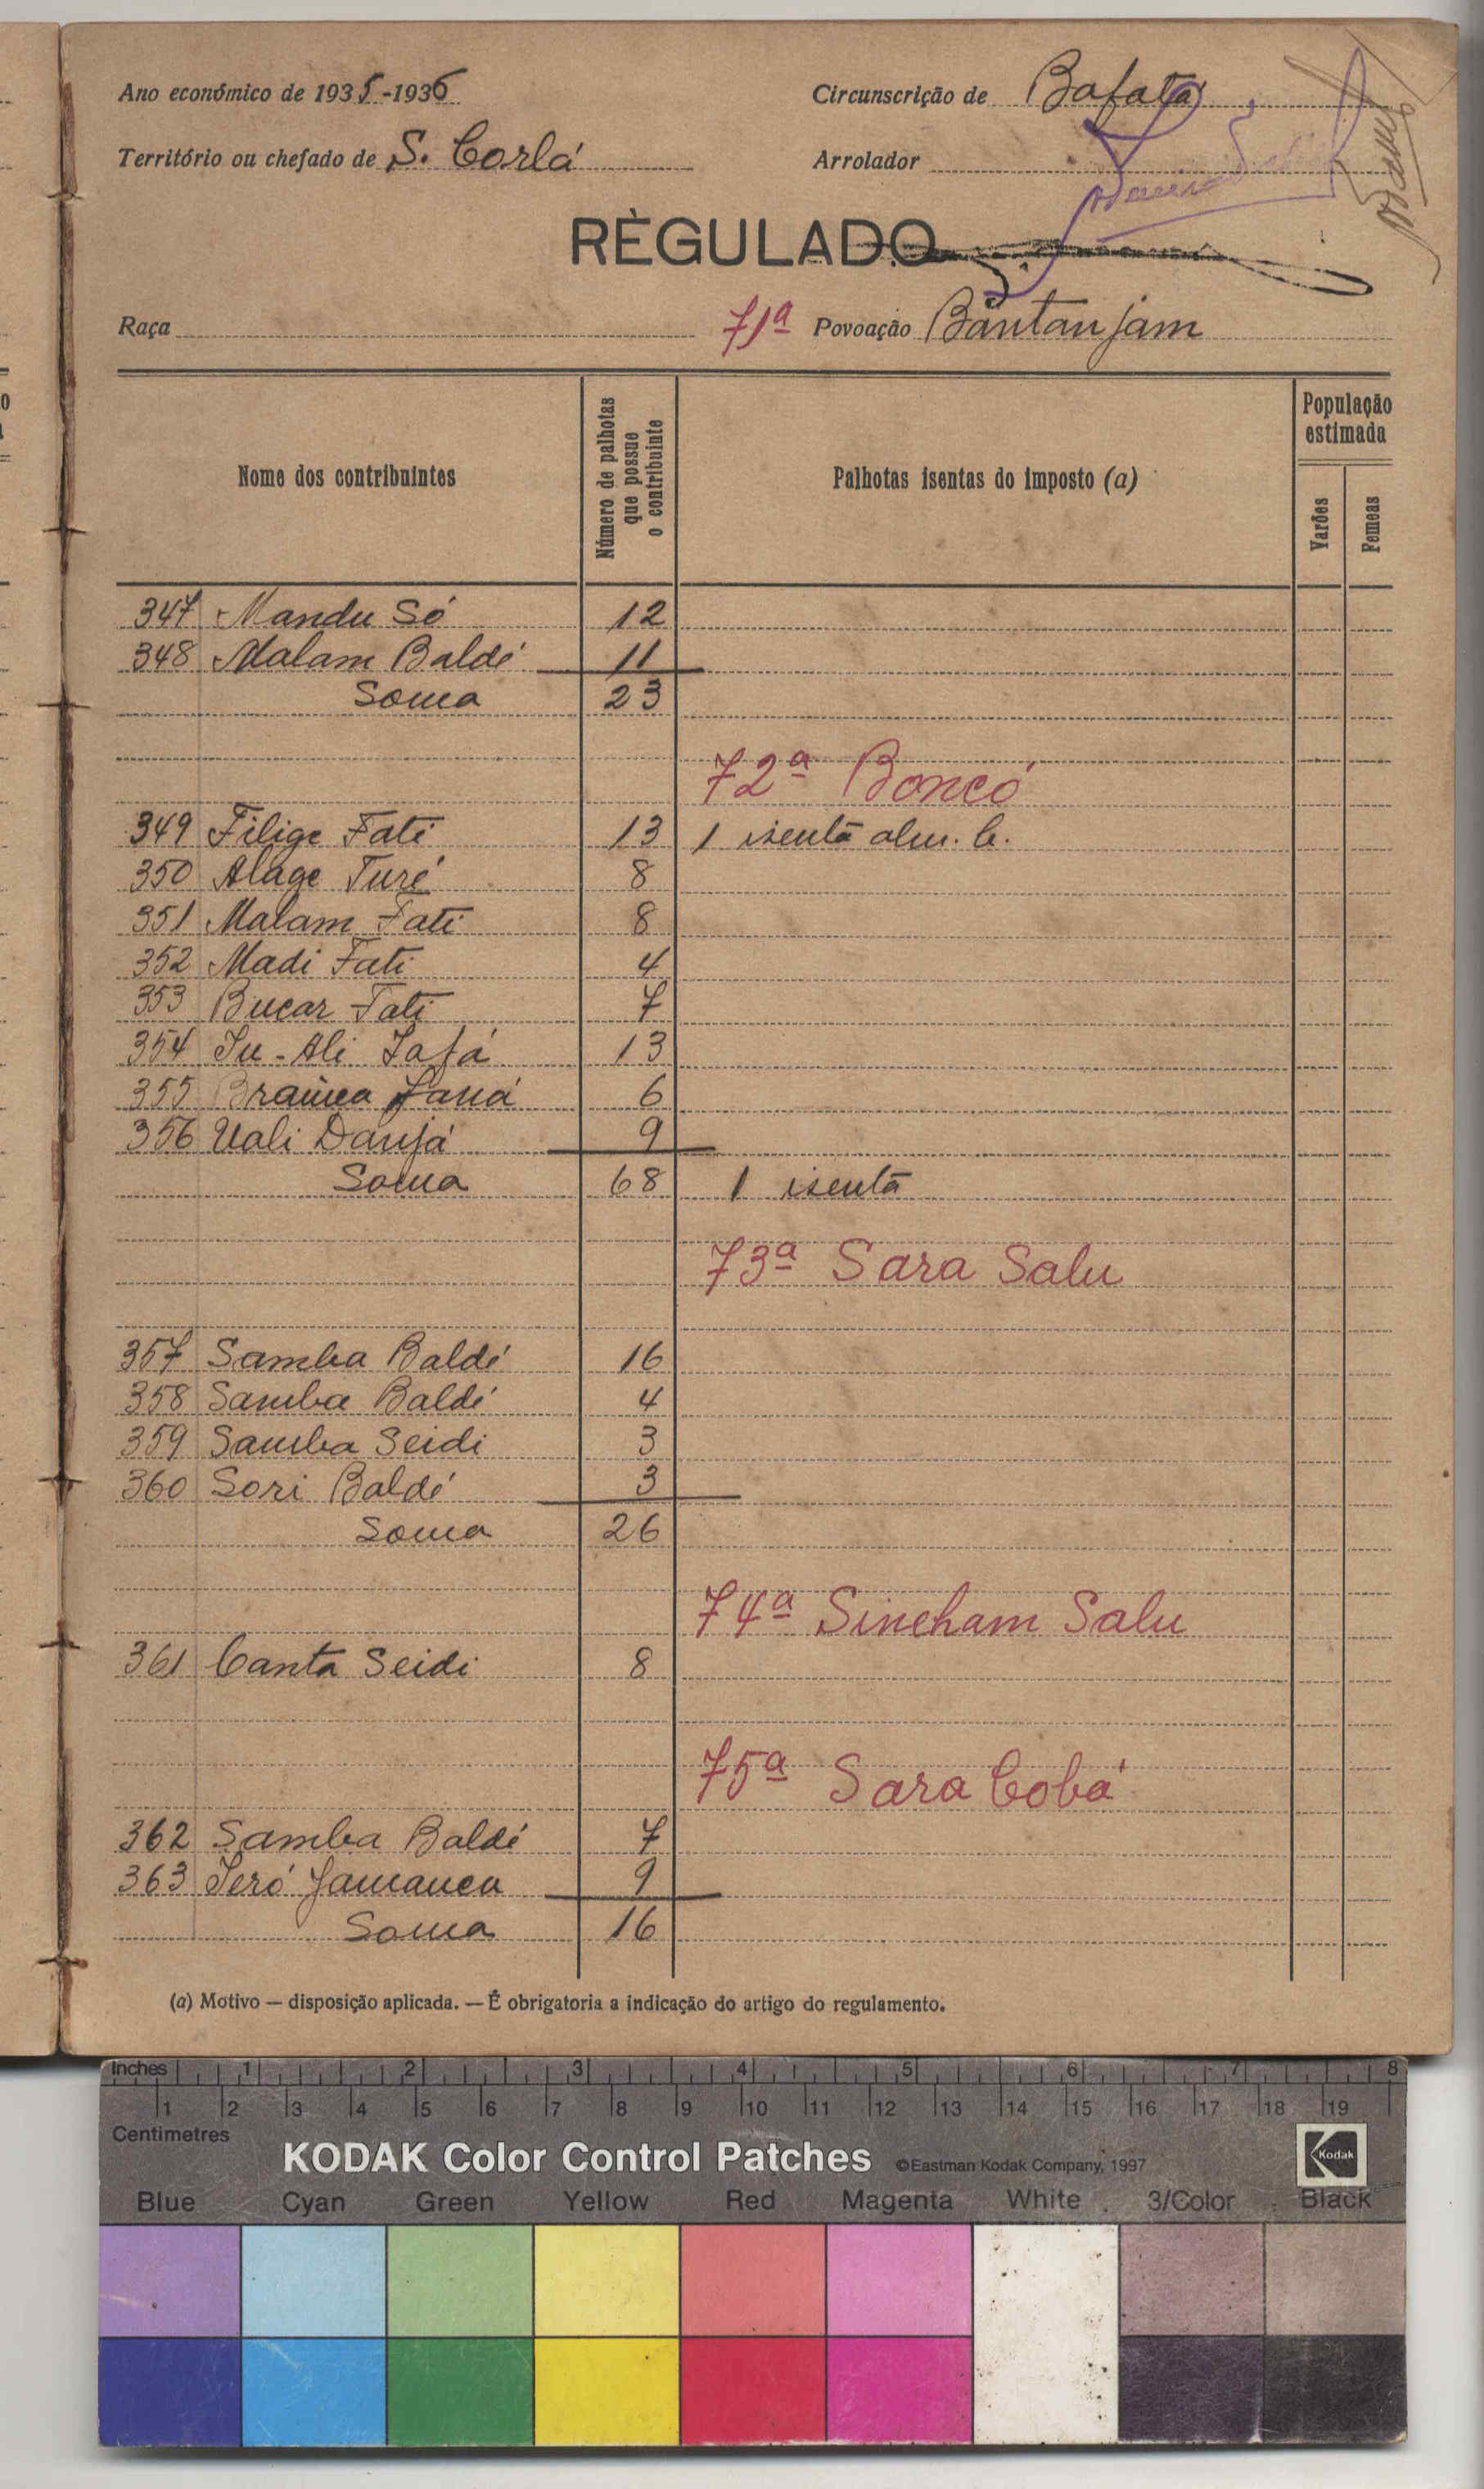 Ano económico de 1935-1936
Circunscrição de Bafatá
Território ou chefado de S. Corlá
Arrolador
RÈGULADO
Raça
71ª Povoação Bantanjam
Nome dos contribuintes
Número de palhotas que possue o contribuinte
Palhotas isentas do imposto (a)
População estimada
Varões
Femeas
347 Mandu Só 12
348 Malam Baldé 11
Soma 23
72ª Boncó
349 Filige Fati 13 1 isenta
350 Alage Turé 8
351 Malam Fati 8
352 Madi Fati 4
353 Bucar Fati 7
354 Su-Ali 13
355 Braima 6
356 Uali Danjá 9
Soma 68 1 isenta
73ª Sara Salu
357 Samba Baldé 16
358 Samba Baldé 4
359 Samba Seidi 3
360 Sori Baldé 3
Soma 26
74ª Sincham Salu
361 Canta Seidi 8
75ª Sara Cobá
362 Samba Baldé 7
363 Jamanca 9
Soma 16
(a) Motivo — disposição aplicada. — É obrigatoria a indicação do artigo do regulamento.
Inches 1 2 3 4 5 6 7 8
1 2 3 4 5 6 7 8 9 10 11 12 13 14 15 16 17 18 19
Centimetres
KODAK Color Control Patches ©Eastman Kodak Company, 1997 Kodak
Blue Cyan Green Yellow Red Magenta White 3/Color Black